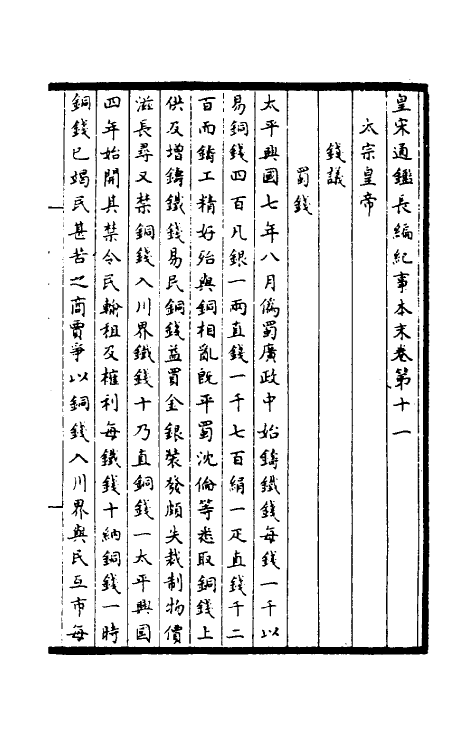 皇宋通鑑長編紀事本末卷第十一
太宗皇帝
錢議
蜀錢
太平興國七年八月僞蜀廣政中始鑄鐵錢每錢一千以
易銅錢四百凡銀一兩直錢一千七百絹一疋直錢千二
百而鑄工精好殆與銅相亂旣平蜀沈倫等悉取銅錢上
供及增鑄鐵錢易民銅錢益買金銀裝發頗失裁制物價
滋長尋又禁銅錢入川界鐵錢十乃直銅錢一太平興國
四年始開其禁令民輸租及榷利每鐵錢十納銅錢一時
銅錢已竭民甚苦之商賈爭以銅錢入川界與民互市每